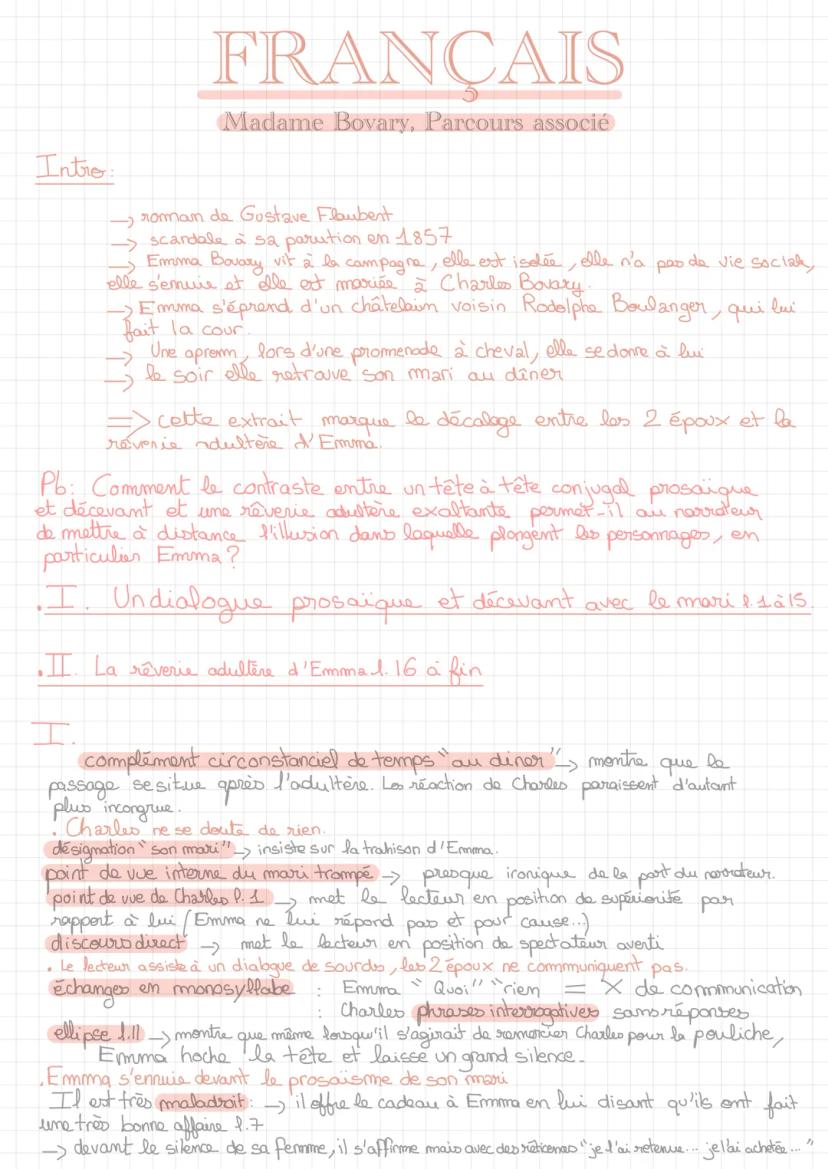 FRANÇAIS
Madame Bovary, Parcours associé
Intro:
→ roman de Gustave Flaubert
→ scandale à sa parution en 1857
→ Emma Bovary vit à la campagne, elle est isolée, elle n'a pas de vie sociale,
elle s'ennuie et elle est mariée à Charles Bovary.
→ Emma s'éprend d'un châtelain voisin Rodolphe Boulanger, qui lui
fait la cour.
→ Une aprem, lors d'une promenade à cheval, elle se donne à lui
→ le soir elle retrouve son mari au dîner
=> cette extrait marque le décalage entre les 2 époux et la
rêverie adultère d'Emma.
Pb: Comment le contraste entre un tête à tête conjugal prosaïque
et décevant et une rêverie adultère exaltante permet-il au narrateur
de mettre à distance l'illusion dans laquelle plongent les personnages, en
particulier Emma?
. I. Un dialogue prosaïque et décevant avec le mari l. 1 à 15.
. II. La rêverie adultère d'Emma l. 16 à fin
I.
complément circonstanciel de temps "au diner" → montre que le
passage se situe après l'adultère. Les réaction de Charles paraissent d'autant
plus incongrue.
. Charles ne se doute de rien.
désignation "son mari" → insiste sur la trahison d'Emma.
point de vue interne du mari trompé → presque ironique de la part du narrateur.
point de vue de Charles l. 1 → met le lecteur en position de supériorité par
rapport à lui (Emma ne lui répond pas et pour cause...)
discours direct → met le lecteur en position de spectateur averti
. Le lecteur assiste à un dialogue de sourds, les 2 époux ne communiquent pas.
échanges en monosyllabe : Emma "Quoi" "rien = X de communication
: Charles phrases interrogatives sans réponses
ellipse l.11 → montre que même lorsqu'il s'agirait de remercier Charles pour la pouliche,
Emma hoche la tête et laisse un grand silence.
. Emma s'ennuie devant le prosaïsme de son mari
Il est très maladroit: → il offre le cadeau à Emma en lui disant qu'ils ont fait
une très bonne affaire l.7
→ devant le silence de sa femme, il s'affirme mais avec des réticences "je l'ai retenue... je l'ai achetée..."